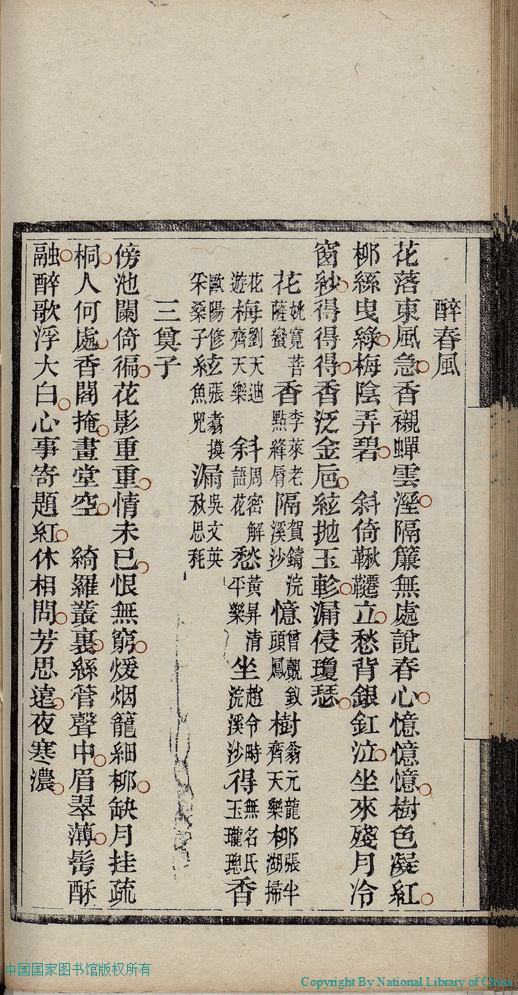 醉春風
花落東風急香襯蟬雲溼隔簾無處說春心憶憶憶樹色凝紅
柳絲曳綠梅陰弄碧　斜倚鞦韆立愁背銀釭泣坐來殘月冷
窗紗得得得香泛金卮絃拋玉軫漏侵瓊瑟
花姚寬菩薩蠻香李萊老點絳脣隔賀鑄浣溪沙憶曾覿釵頭鳳樹翁元龍齊天樂柳張半湖掃
花遊梅劉天迪齊天樂斜周密解語花愁黃昇清平樂坐趙令時浣溪沙得無名氏玉瓏璁香
歐陽修采桑子絃張翥摸魚兒漏吳文英秋思耗
三奠子
傍池闌倚徧花影重重情未已恨無窮煖烟籠細柳缺月挂疏
桐人何處香閣掩畫堂空　綺羅叢裏絲管聲中眉翠薄髩酥
融醉歌浮大白心事寄題紅休相問芳思遠夜寒濃
中国国家图书馆版权所有
Copyright By National Library of China